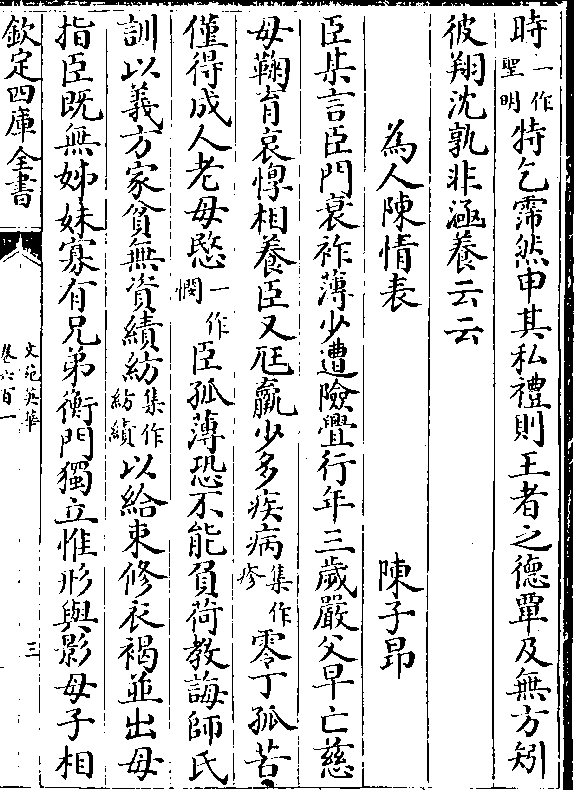 時一作聖明特乞霈然申其私禮則王者之德覃及無方矧
彼翔沈孰非涵養云云
為人陳情表 陳子昂
臣某言臣門衰祚薄少遭險釁行年三歲嚴父早亡慈
母鞠育哀惸相養臣又尫羸少多疾病集作疹零丁孤苦
僅得成人老母愍一作憫臣孤薄恐不能負荷教誨師氏
訓以義方家貧無資績紡集作紡績以給束修衣褐並出母
指臣既無姊妹寡有兄弟衡門獨立惟形與影母子相
欽定四庫全書
文苑英華
卷六百一
三